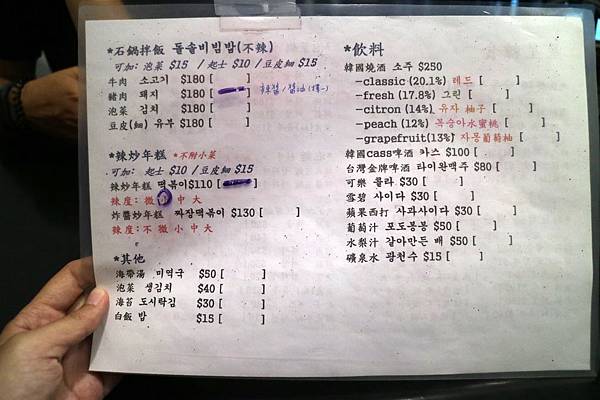 *石鍋拌飯 돌솥비빔밥(不辣)
可加: 泡菜 $15 / 起士 $10 / 豆皮細 $15
牛肉 소고기 $180 [ ]
豬肉 돼지 $180 [ ] 辣醬/醬油(擇一)
泡菜 김치 $180 [ ]
豆皮(細) 유부 $180 [ ]
*辣炒年糕 *不附小菜
可加: 起士 $10 / 豆皮細 $15
辣炒年糕 떡볶이$110 [ ]
辣度: 微 小 中 大
炸醬炒年糕 짜장떡볶이 $130 [ ]
辣度: 不 微 小 中 大
*其他
海帶湯 미역국 $50 [ ]
泡菜 생김치 $40 [ ]
海苔 도시락김 $30 [ ]
白飯 밥 $15 [ ]
*飲料
韓國燒酒 소주 $250
-classic (20.1%) 레드 [ ]
-fresh (17.8%) 그린 [ ]
-citron (14%) 유자 柚子 [ ]
-peach (12%) 복숭아水蜜桃 [ ]
-grapefruit(13%) 자몽葡萄柚 [ ]
韓國cass啤酒 카스 $100 [ ]
台灣金牌啤酒 타이완맥주 $80 [ ]
可樂 콜라 $30 [ ]
雪碧 사이다 $30 [ ]
蘋果西打 사과사이다 $30 [ ]
葡萄汁 포도봉봉 $50 [ ]
水梨汁 갈아만든 배 $50 [ ]
礦泉水 광천수 $15 [ ]